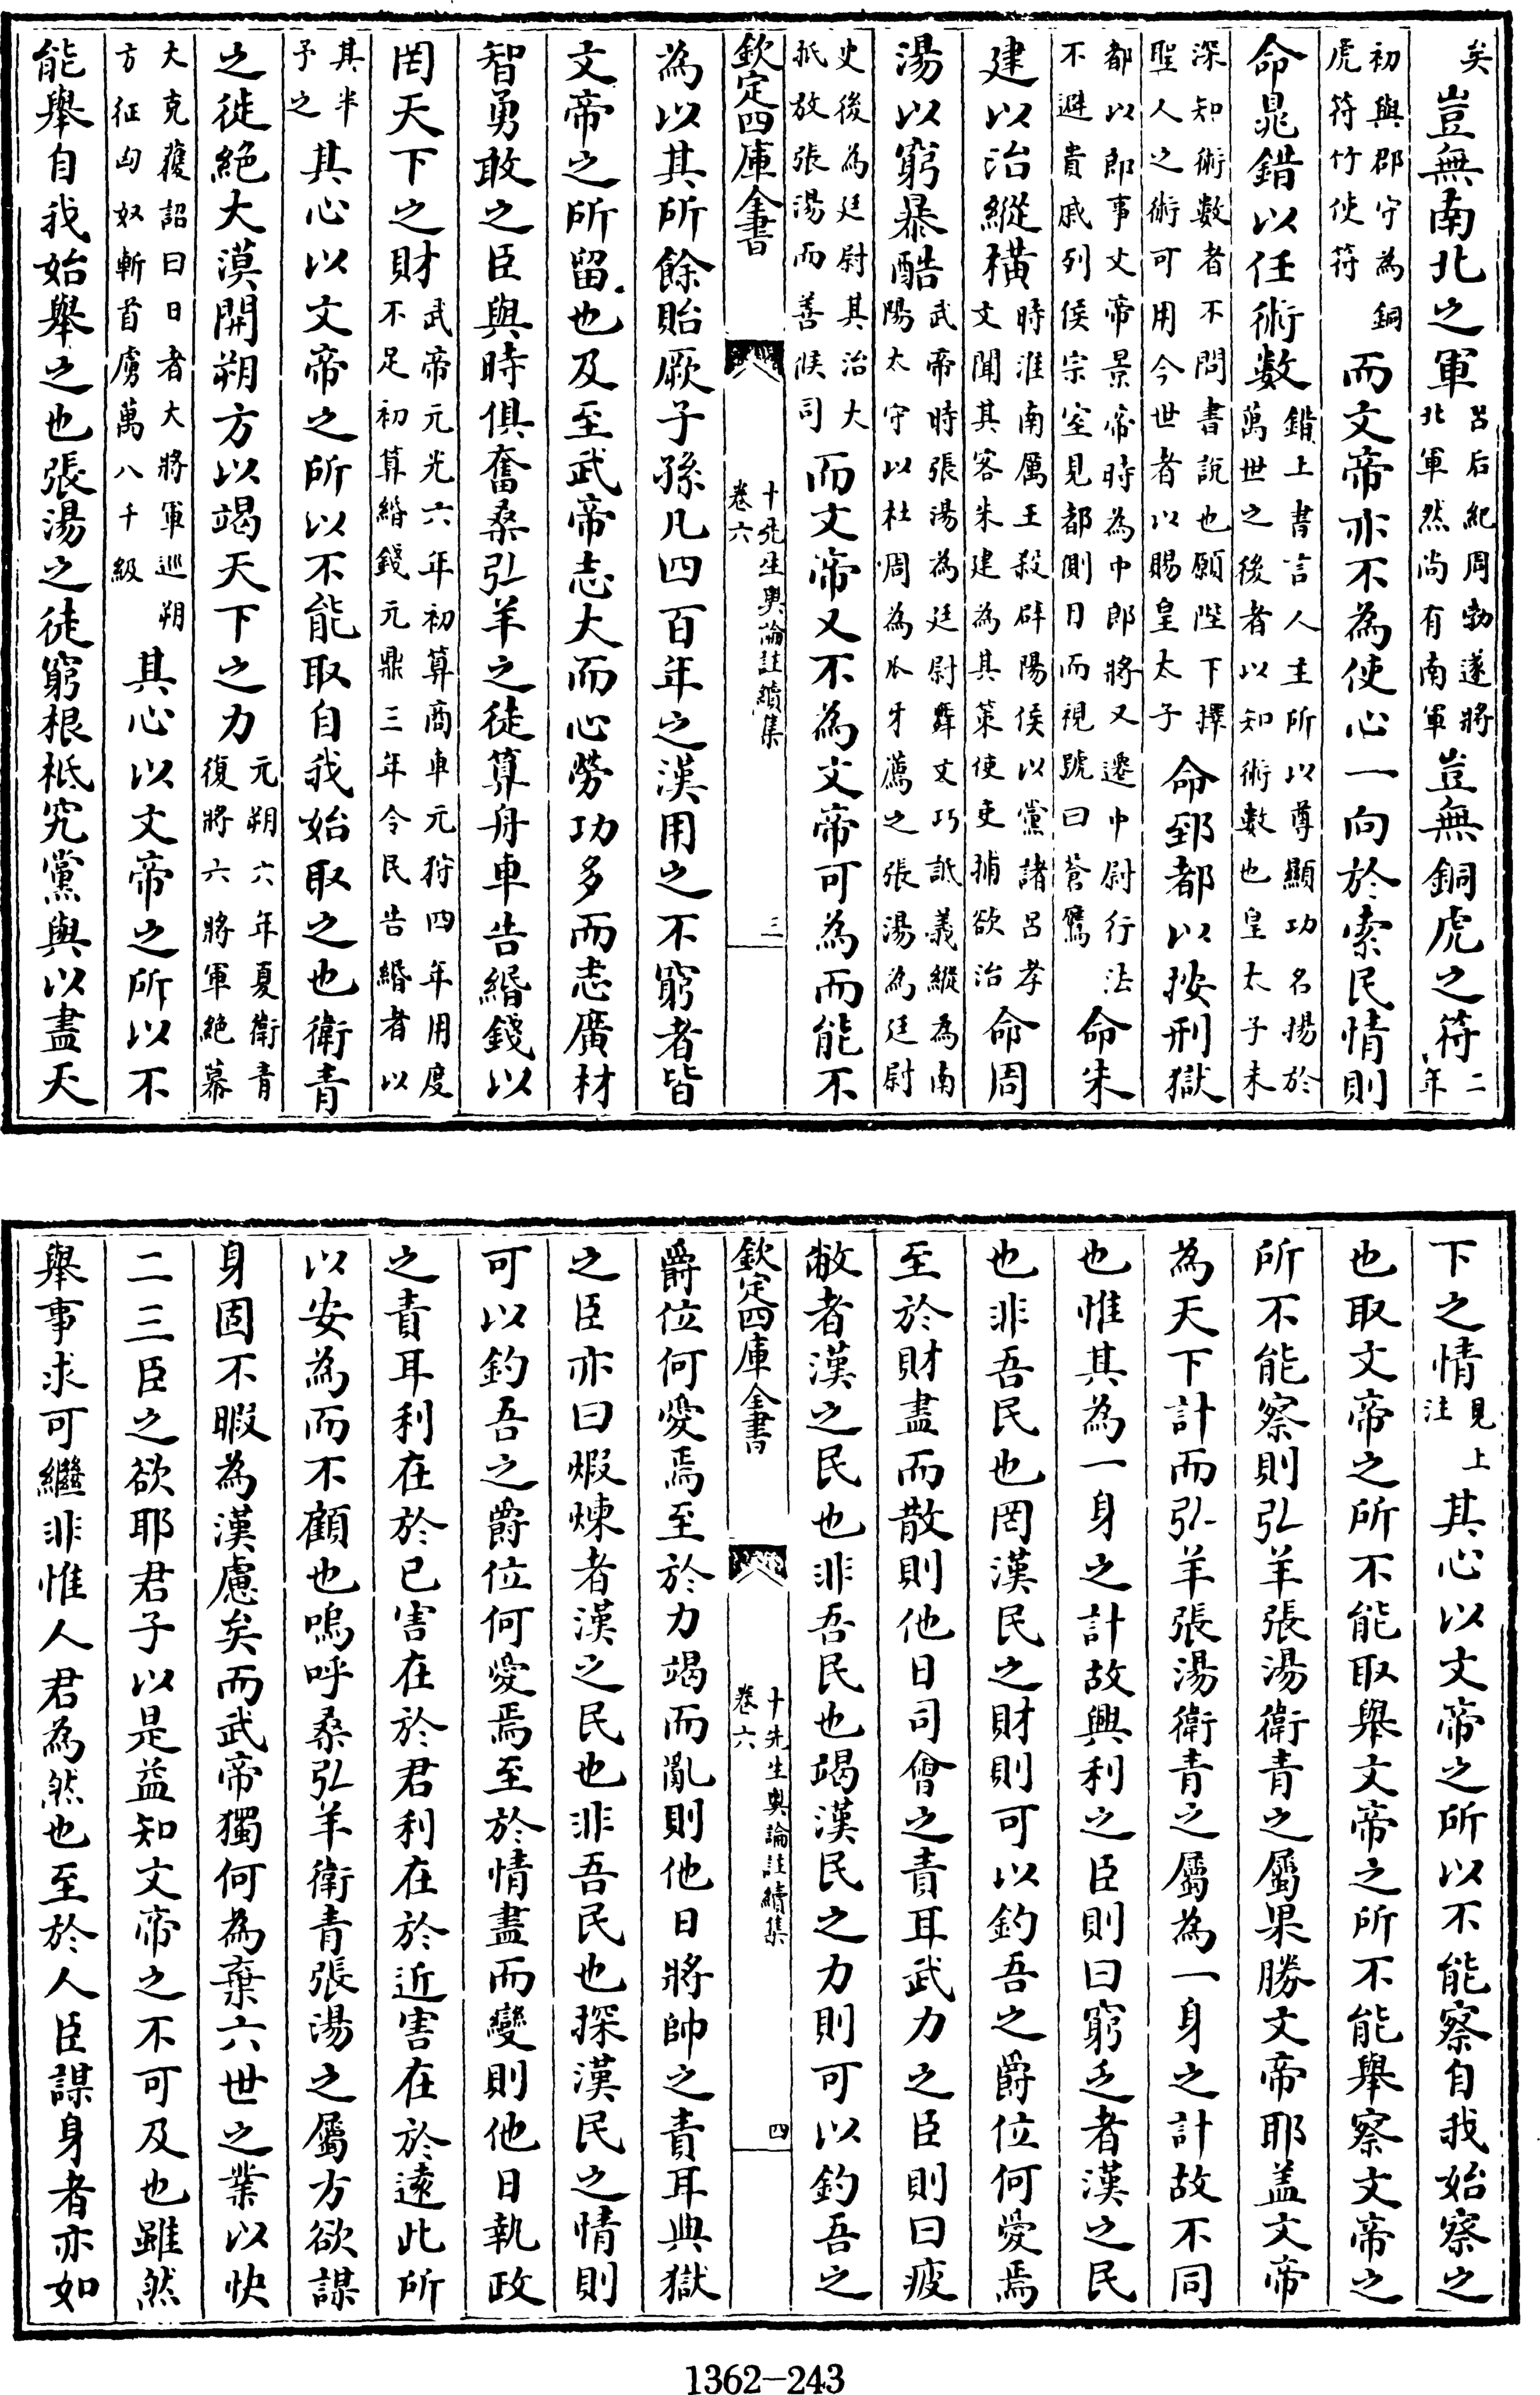 矣豈無南北之軍呂后紀周勃遂將北軍然尚有南軍豈無銅虎之符二年
初與郡守為銅虎符竹使符而文帝亦不為使心一向於索民情則
命鼂錯以任術數錯上書言人主所以尊顯功名揚於萬世之後者以知術數也皇太子未
深知術數者不問書說也願陛下擇聖人之術可用今世者以賜皇太子命郅都以按刑獄
都以郎事文帝景帝時為中郎將又遷中尉行法不避貴戚列侯宗室見都側目而視號曰蒼鷹命朱
建以治縱橫時淮南厲王殺辟陽侯以黨諸呂孝文聞其客朱建為其策使吏捕欲治命周
湯以窮暴酷武帝時張湯為廷尉舞文巧詆義縱為南陽太守以杜周為爪牙薦之張湯為廷尉
史後為廷尉其治大抵放張湯而善候司而文帝又不為文帝可為而能不
欽定四庫全書
十先生奧論註續集
卷六
三
為以其所餘貽厥子孫凡四百年之漢用之不窮者皆
文帝之所留也及至武帝志大而心勞功多而志廣材
智勇敢之臣與時俱奮桑弘羊之徒算舟車告緡錢以
罔天下之財武帝元光六年初算商車元狩四年用度不足初算緡錢元鼎三年令民告緡者以
其半予之其心以文帝之所以不能取自我始取之也衛青
之徒絕大漠開朔方以竭天下之力元朔六年夏衛青復將六將軍絕幕
大克獲詔曰日者大將軍巡朔方征匈奴斬首虜萬八千級其心以文帝之所以不
能舉自我始舉之也張湯之徒窮根柢究黨與以盡天
下之情見上注其心以文帝之所以不能察自我始察之
也取文帝之所不能取舉文帝之所不能舉察文帝之
所不能察則弘羊張湯衛青之屬果勝文帝耶盖文帝
為天下計而弘羊張湯衛青之屬為一身之計故不同
也惟其為一身之計故興利之臣則曰窮乏者漢之民
也非吾民也罔漢民之財則可以釣吾之爵位何愛焉
至於財盡而散則他日司會之責耳武力之臣則曰疲
敝者漢之民也非吾民也竭漢民之力則可以釣吾之
欽定四庫全書
十先生奧論註續集
卷六
四
爵位何愛焉至於力竭而亂則他日將帥之責耳典獄
之臣亦曰煅煉者漢之民也非吾民也探漢民之情則
可以釣吾之爵位何愛焉至於情盡而變則他日執政
之責耳利在於已害在於君利在於近害在於遠此所
以安為而不顧也嗚呼桑弘羊衛青張湯之屬方欲謀
身固不暇為漢慮矣而武帝獨何為棄六世之業以快
二三臣之欲耶君子以是益知文帝之不可及也雖然
舉事求可繼非惟人君為然也至於人臣謀身者亦如
1362-243